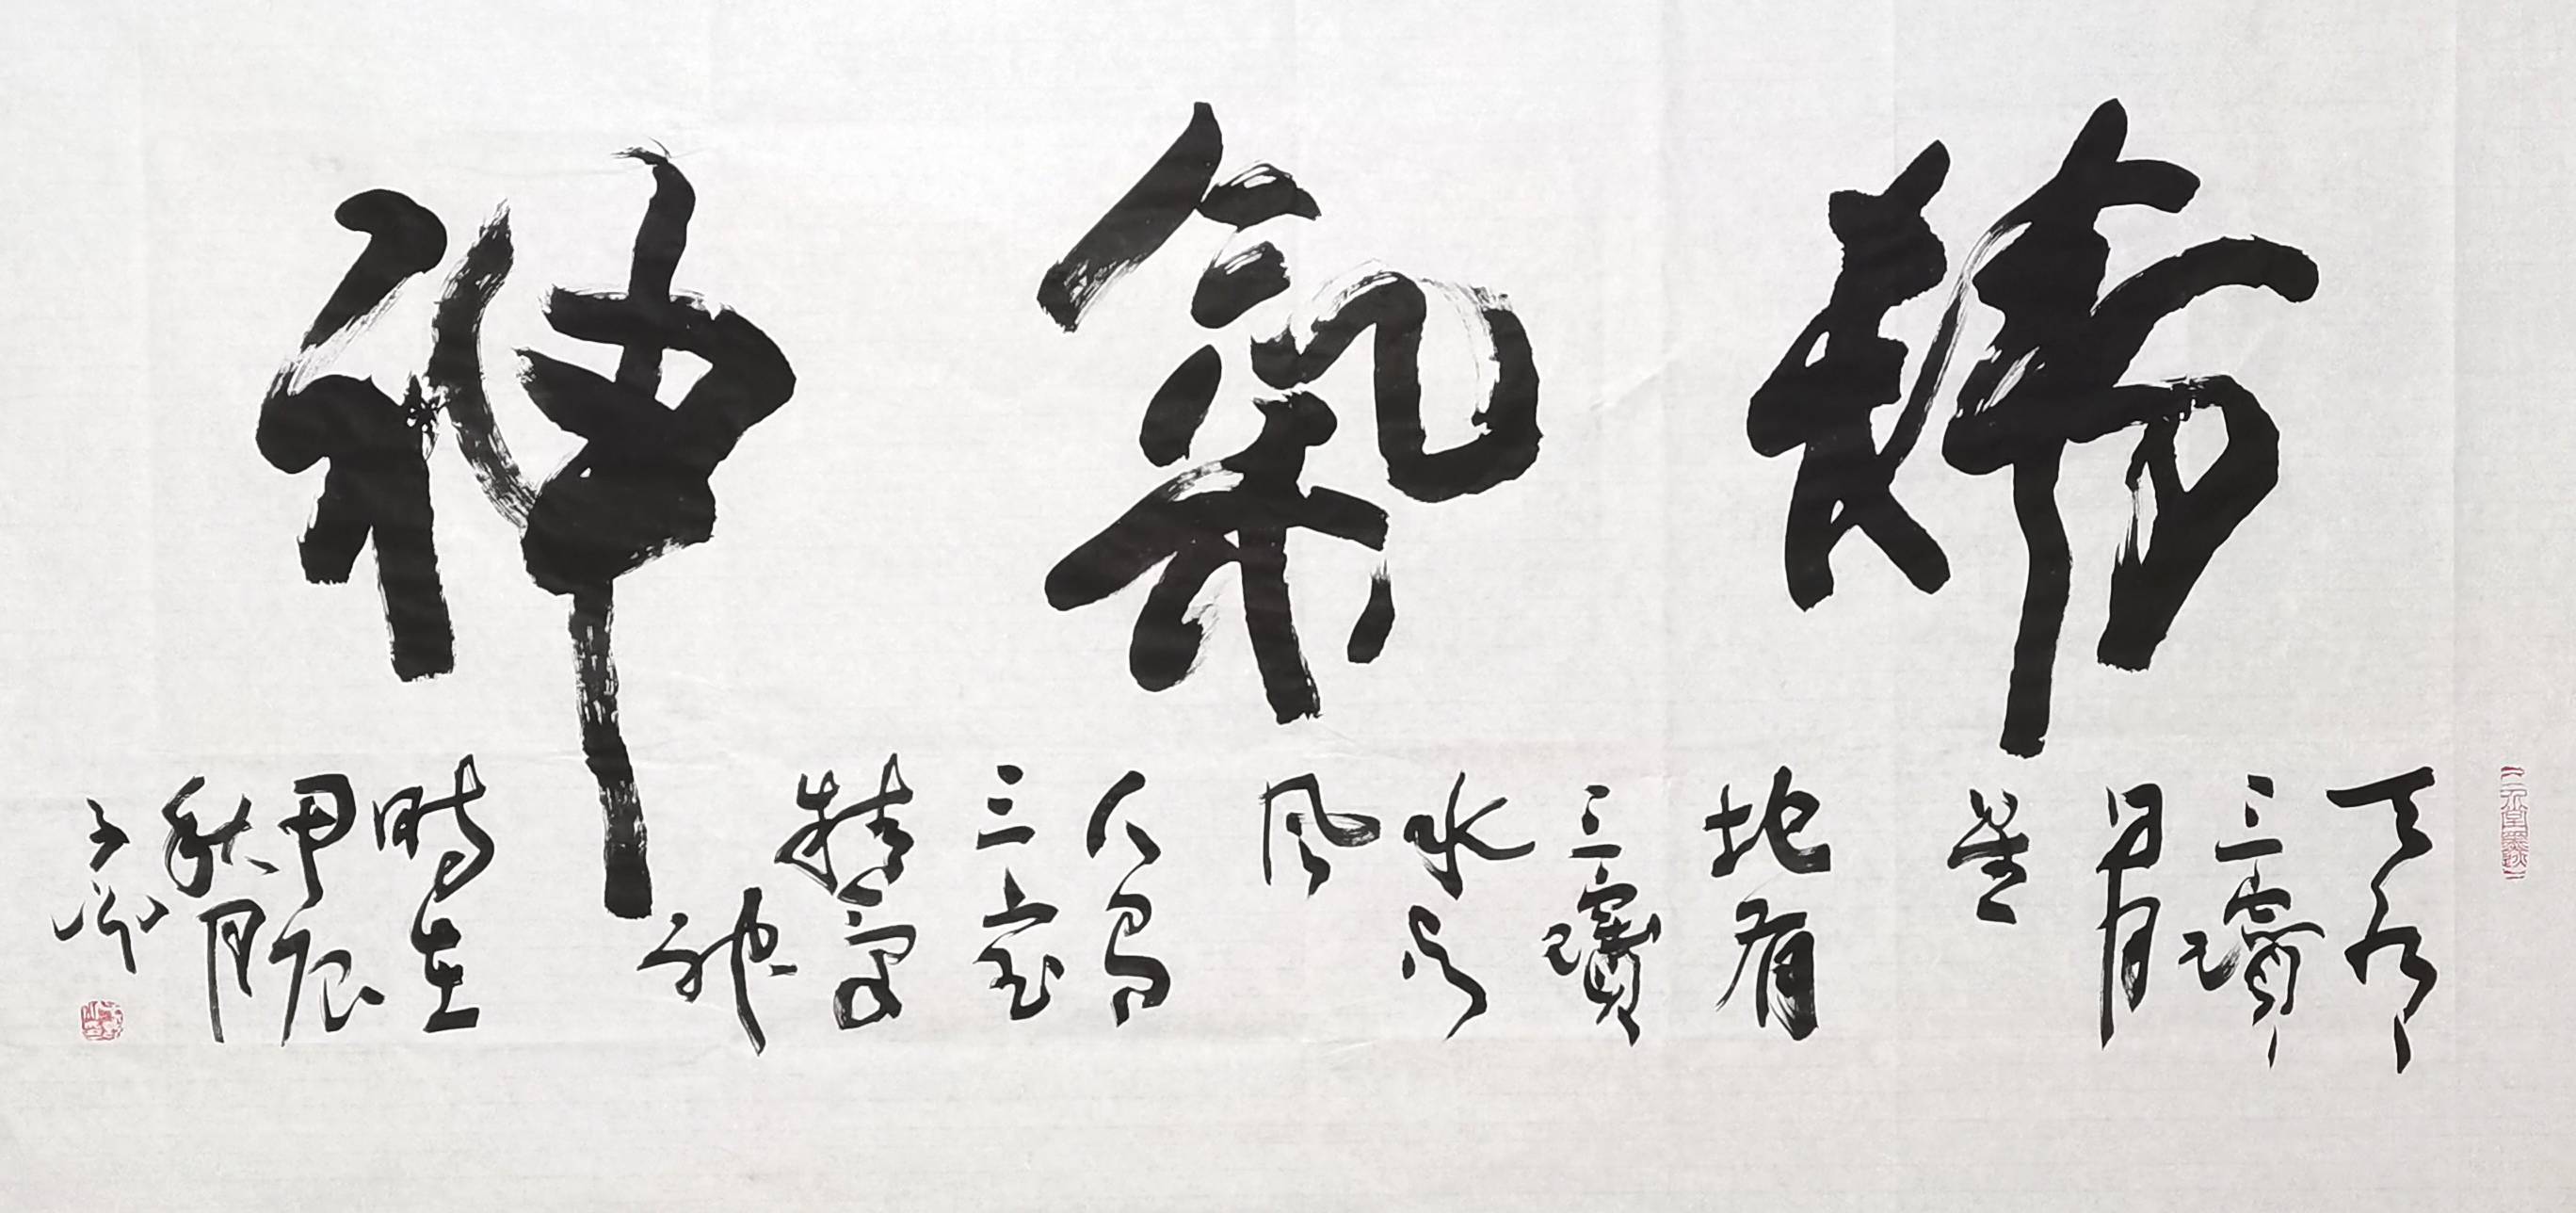 精氣神
天有
三寶
日月
星
地有
三寶
水火
風
人有
三宝
精氣
神
時在
甲辰
秋月
子